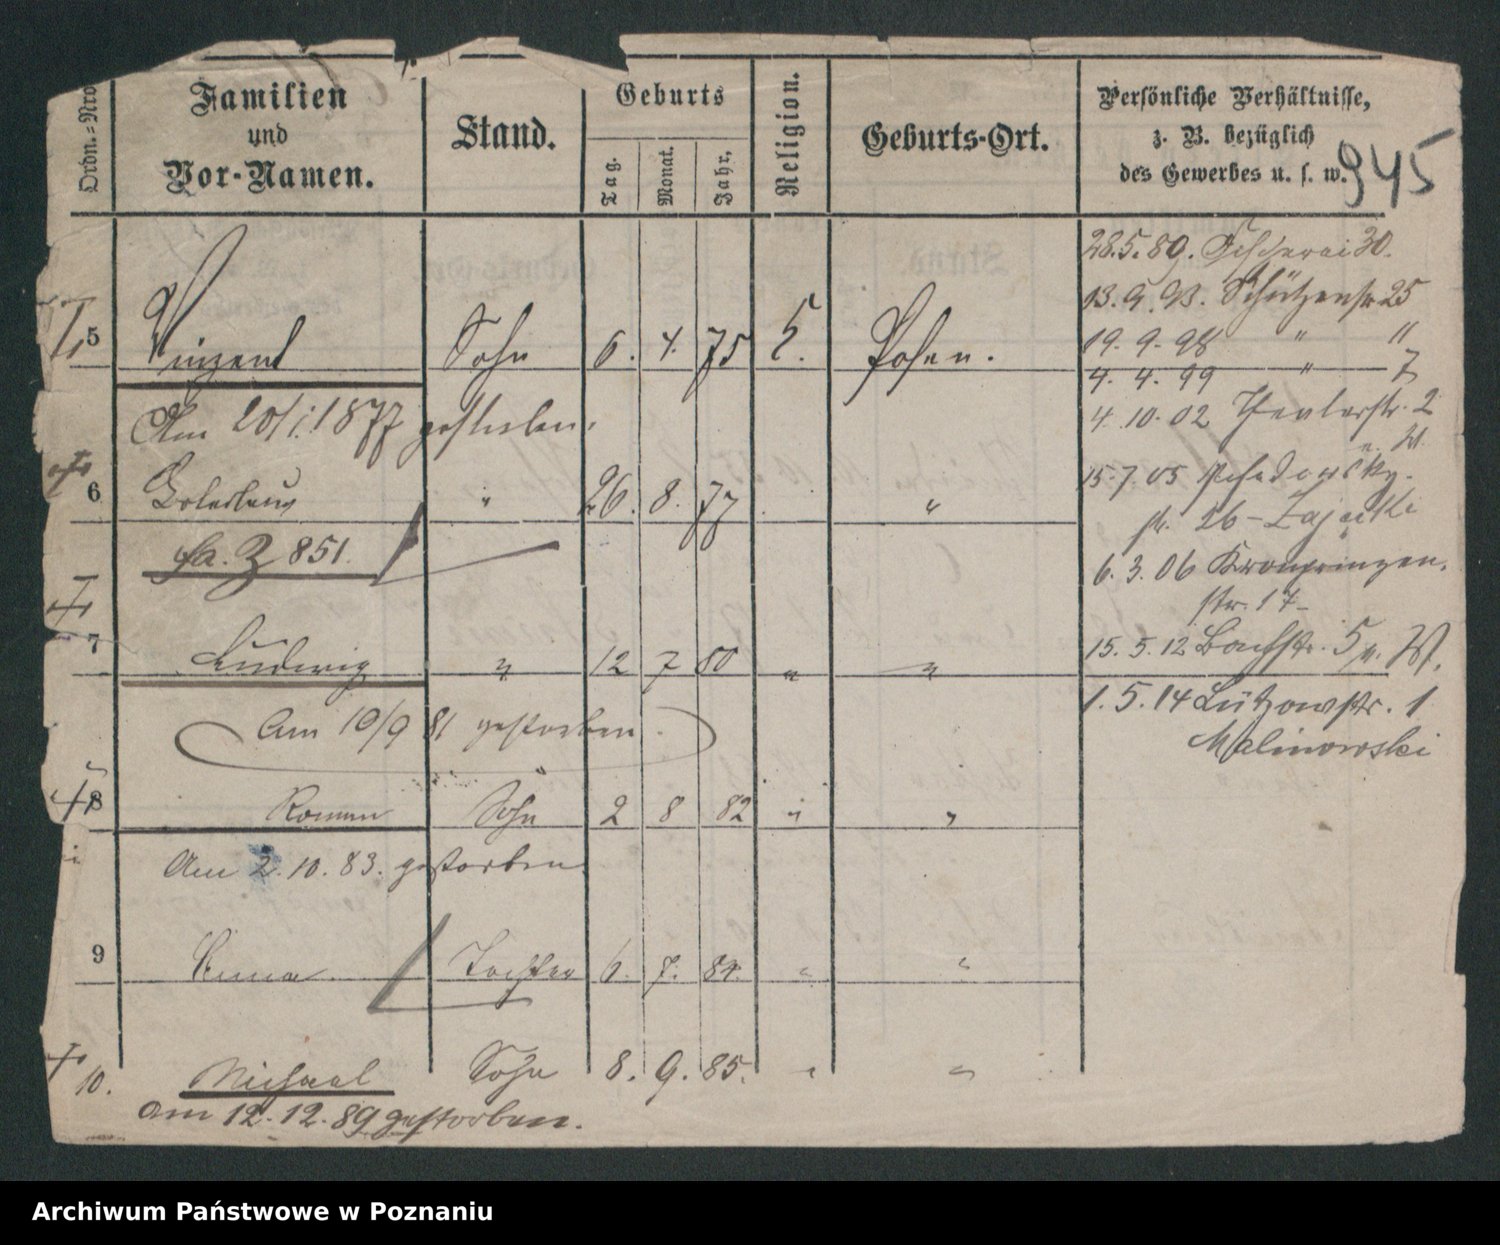 Ordn.=Nro
Familien
und
Vor-Namen.
Stand.
Geburts
Tag.
Monat.
Jahr,
Religion.
Geburts-Ort.
Persönliche Verhältnisse,
z. B. bezüglich
des Gewerbes u. s. w.
945
5 Vinzent Sohn 6. 4. 75 Posen.
Am 20/1. 1877 gestorben.
6 Boleslaus " 26. 8. 77 "
fa. Z 851.
7 Ludwig " 12 7 80 " "
Am 10/9 81 gestorben.
8 Roman Sohn 2 8 82 " "
Am 2.10.83. gestorben
9 Anna Tochter 6. 7. 84. " "
10. Michael Sohn 8. 9. 85. " "
am 12.12.89 gestorben.
28.5.89. Fischerei 30.
13.9.93. Schützenstr 25
19.9.98 " "
4.4.99 " 7
4.10.02 Theaterstr. 2
15.7.05 Posadowsky-
str. 26 - Zajacki
6.3.06 Kronprinzen-
str. 17-
15.5.12 Bachstr. 5 n. W.
1.5.14 Lützowstr. 1
Malinowski
Archiwum Państwowe w Poznaniu